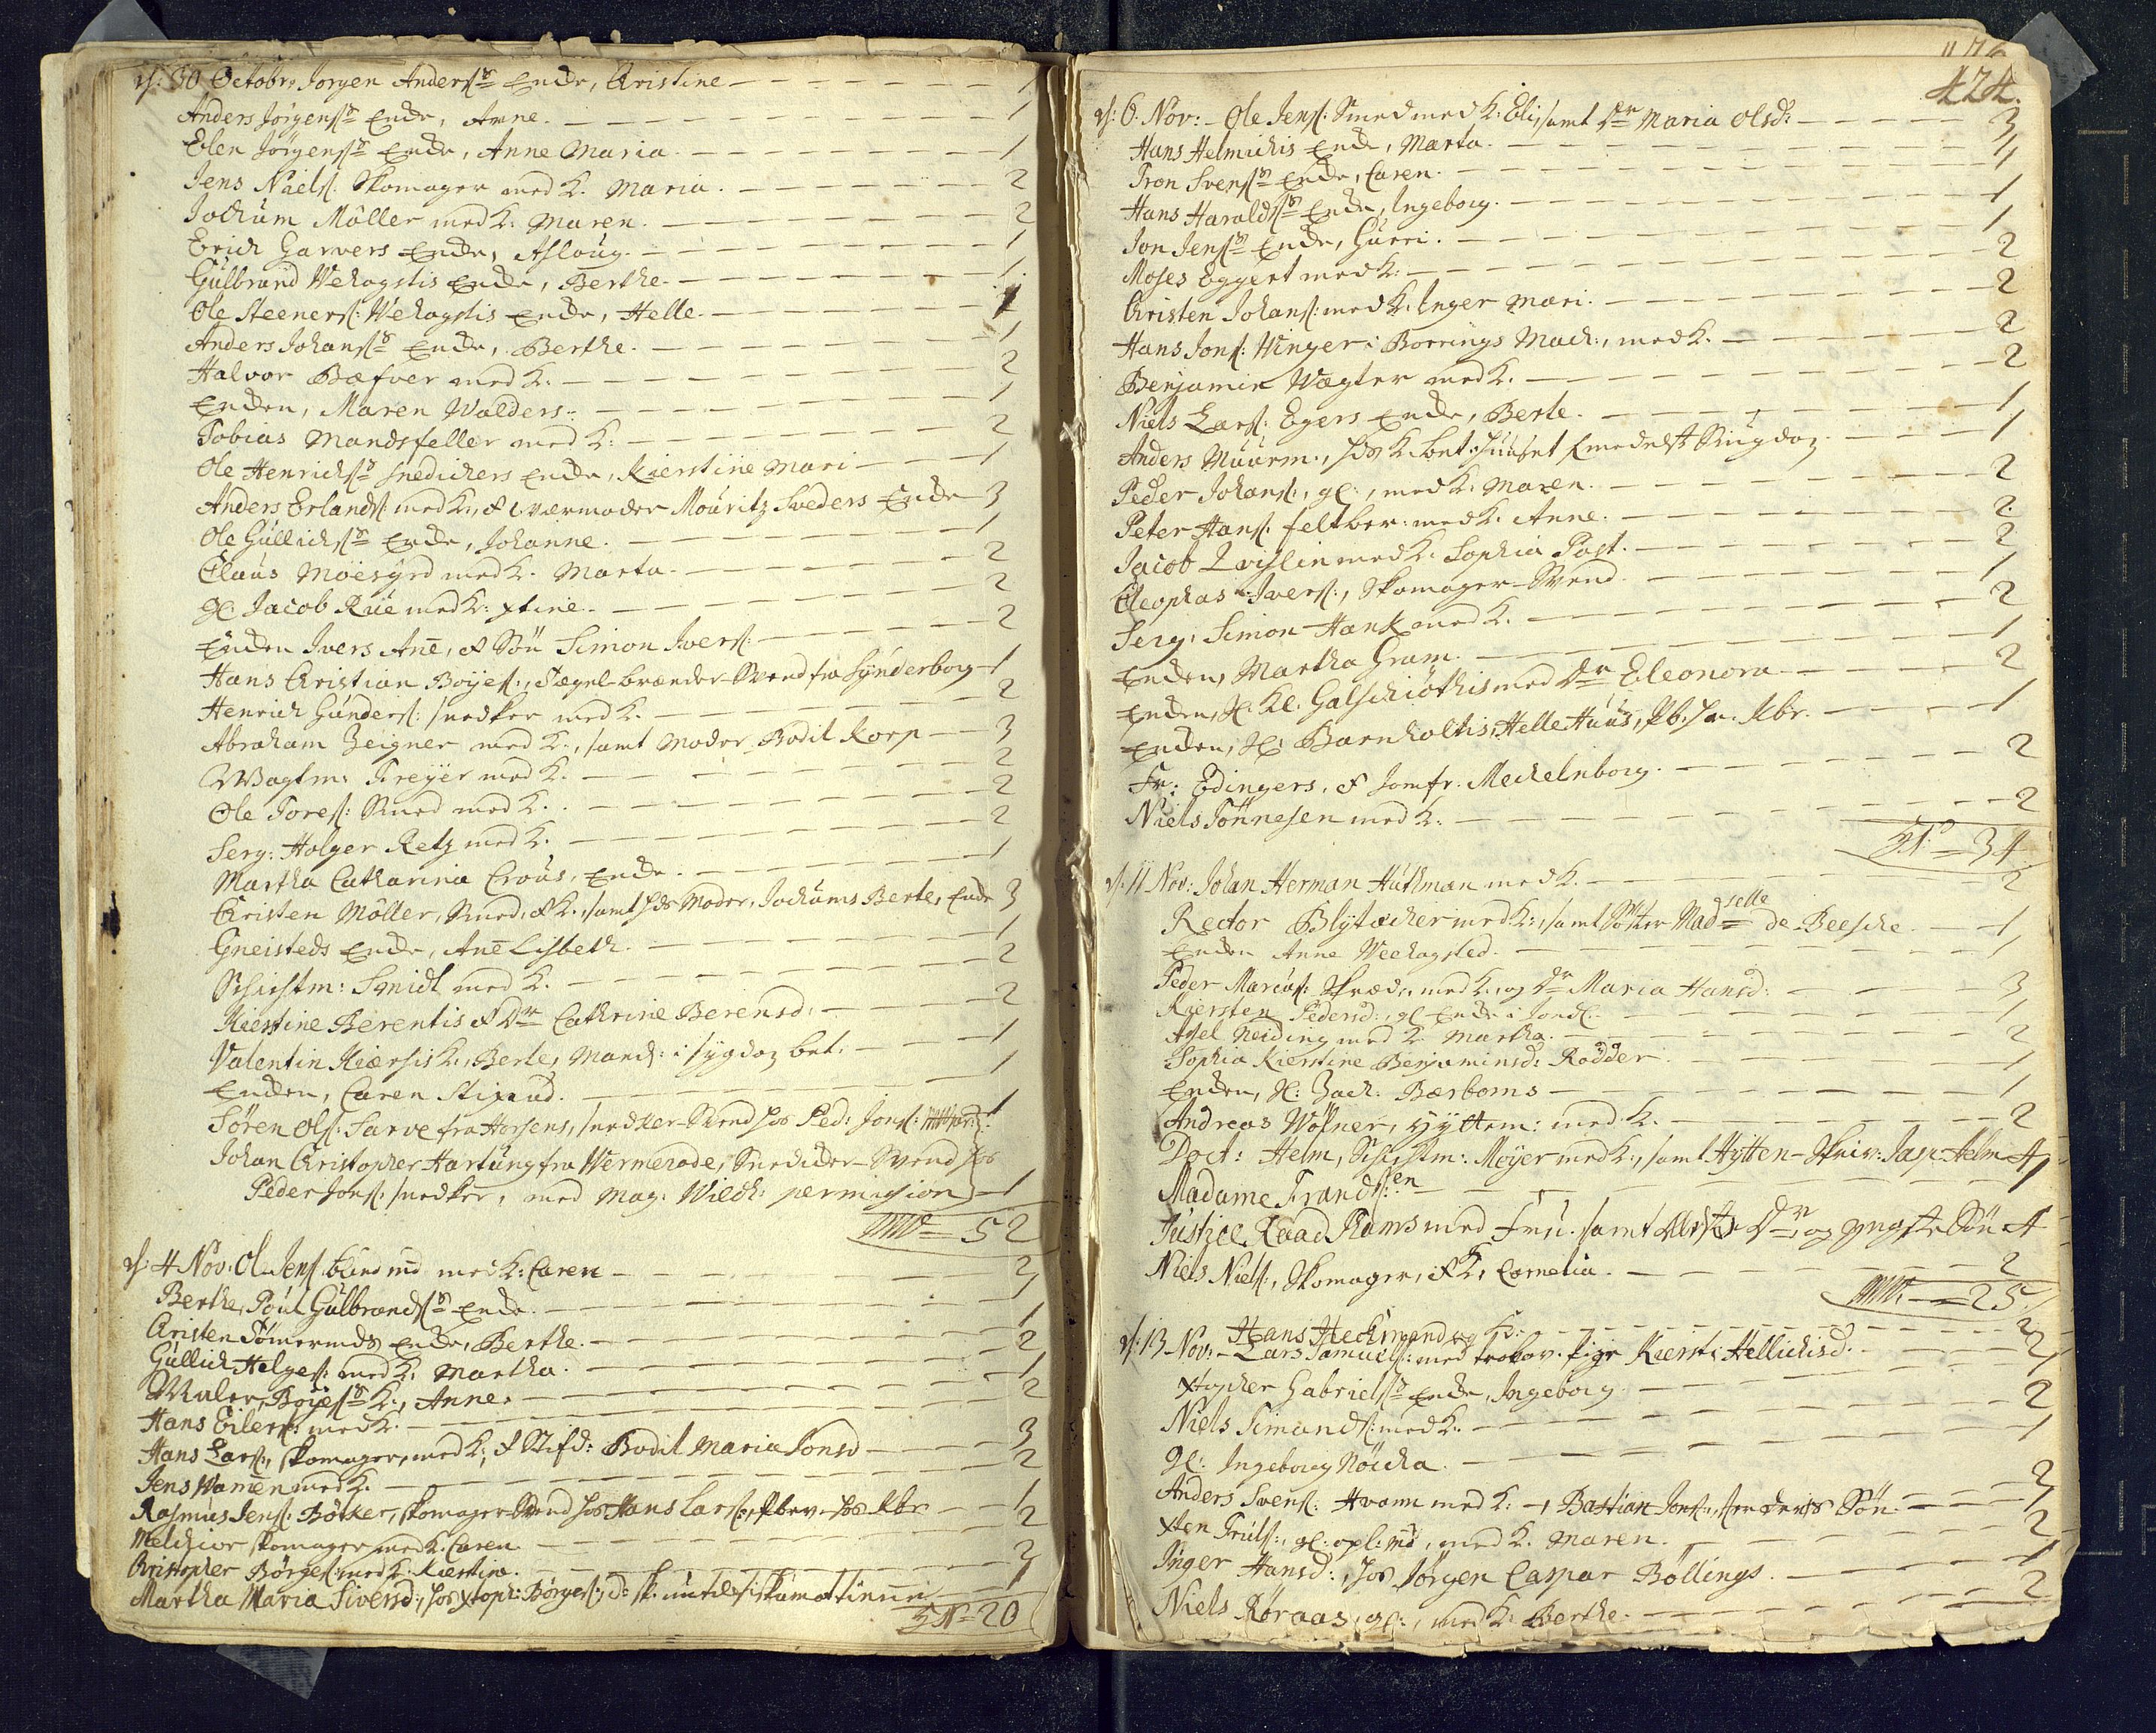 d: 30 Octobr. Jørgen Anders: Encke, Cristine — 1
Anders Jörgens: Encke, Anne. — 1
Elen Jörgens: Encke, Anne Maria — 1
Jens Niels: Skomager med K. Maria. — 2
Jochum Möller med K: Maren. — 2
Erich Garvers Encke, Asloug. — 1
Gulbrand Wehagstis Encke, Berthe. — 1
Ole Steeners: Wehagstis Encke, Helle. — 1
Anders Johans: Encke, Berthe. — 1
Halvor Bæfver med K: — 2
Encken, Maren Walders. — 1
Tobias Mandsfeller med K: — 2
Ole Henrichs: Snedickers Encke, Kierstine Mari — 1
Anders Erlands: med K:, & værmoder Mouritz Sveders Encke 3
Ole Gullichs: Encke, Johanne. — 1
Claus Moesÿrd med K. Marta. — 2
gl. Jacob Rüe med K: xtine. — 2
Encken Ivers Anē, & Sön Simon Ivers: — 2
Hans Cristian Boÿes:, Tægel-brænder-Svend fra Synderborg — 1
Henrich Gunders: snedker med K. — 2
Abraham Zeigner med K:, samt Moder Bodil Korp — 3
Wagtm: Freÿer med K. — 2
Ole Tores: Smed med K. — 2
Serg: Holger Retz med K. — 2
Martha Catharina Crous, Encke. — 1
Cristen Möller, Smed, & K., samt hds Moder, Jochums Berte, Encke 3
Gneisteds Encke, Anē Lisbeth. — 1
Schichtm: Smidt med K. — 2
Kierstine Berentis & Dr Cathrine Berensd: — 2
Valentin Kiærsis K., Berte, Mand: i sygdom bet. — 1
Encken, Caren Stigaud. — 1
Sören Ols: Farve fra Horsens, snedker-Svend hos Ped: Jons: — 1
Johan Cristopher Hartung fra Wermerode, Snedicker-Svend hos
Peder Jons: snedker, med Mag: Wilch: permission — 1
52
d: 4 Nov: Ole Jens: med K: Caren — 2
Berthe, Poul Gulbrands: Encke. — 1
Cristen Tömermds Encke, Berthe. — 1
Gullich Helges: med K: Martha. — 2
Maler, Boÿes: K., Anne. — 1
Hans Eilers: med K. — 2
Hans Lars:, skomager, med K:, & Stifd: Bodil Maria Jonsd — 3
Jens Wamen med K. — 2
Rasmus Jens: Bötker, skomager-Svend hos Hans Lars: — 1
Melchior skomager med K. Caren — 2
Cristopher Börges: med K. Kierstine. — 2
Martha Maria Siversd:, hos xtoph: Börges: — 1
= 20
424.
d: 6. Nov: Ole Jens: Smed med K: Eli, samt Dr Maria Olsd: — 3
Hans Helmichis Encke, Marta. — 1
Tron Svens: Encke, Caren. — 1
Hans Haralds: Encke, Ingeborg. — 1
Jon Jens: Encke, Gurri. — 1
Moses Eggert med K: — 2
Cristen Johans: med K. Inger Mari. — 2
Hans Jons: Winger: Borrings Mach:, med K. — 2
Benjamin Wægter med K. — 2
Niels Lars: Egers Encke, Berte. — 1
Anders Muurm:, hds K. bet. — 1
Peder Johans:, gl:, med K. Maren. — 2
Peter Hans: feltber: med K. Anne. — 2
Jacob Qvislin med K. Sophia Post. — 2
Cleophas Ivers:, Skomager-Svend. — 1
Serg: Simon Hank med K. — 2
Encken, Martha Gram. — 1
Encken, H: Kl. Galschiöthis med Dr Eleonora — 2
Encken, H: Barnholtis, Helle Huus — 1
Fr: Edingers, & Jomfr. Mechelnborg. — 2
Niels Tönnesen med K. — 2
= 34
d: 11 Nov: Johan Herman Huthman med K. — 2
Rector Blÿtæcker med K:, samt Söster Madselle de Beesche
Encken Anne Weehagsted. — 1
Peder Marcus: Skræd: med K. og Dr Maria Hansd: — 3
Kiersten Pedersd:, gl Encke i Jonds: — 1
Axel Neiding med K. Martha. — 2
Sophia Kierstine Benjaminsd: Rödder — 1
Encken, H: Zach: Bærboms — 1
Andreas Wöfner, Hÿttem: med K. — 2
Doct: Helm, Schichtm: Möÿer med K:, samt Hÿtten-Skriv: Jasp. Helm 4
Madame Frandsen — 1
Justice Raad Thoms med Frü. samt ældste Dr og yngste Sön 4
Niels Niels:, Skomager, & K, Cornelia. — 2
= 25
Hans Heckmand og K: — 2
d: 13 Nov: Lars Samuels: med trolov. pige Kiersti Hellichisd: — 2
xtopher Gabriels: Encke, Ingeborg — 1
Niels Simonds: med K. — 2
gl: Ingeborg Nöicka. — 1
Anders Svens: Hvam med K:, Bastian Jons: Sön — 3
xten Truls:, gl: opl: md, med K. Maren. — 2
Inger Hansd:, hos Jörgen Caspar Böllings. — 1
Niels Röraas, gl:, med K: Berthe. — 2